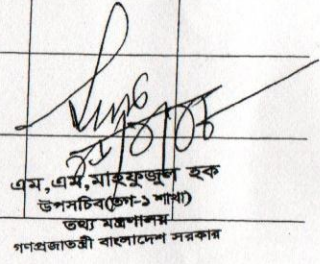 এম,এম,মাহফুজুল হক
উপসচিব(তগ-১ শাখা)
তথ্য মন্ত্রণালয়
গণপ্রজাতন্ত্রী বাংলাদেশ সরকার